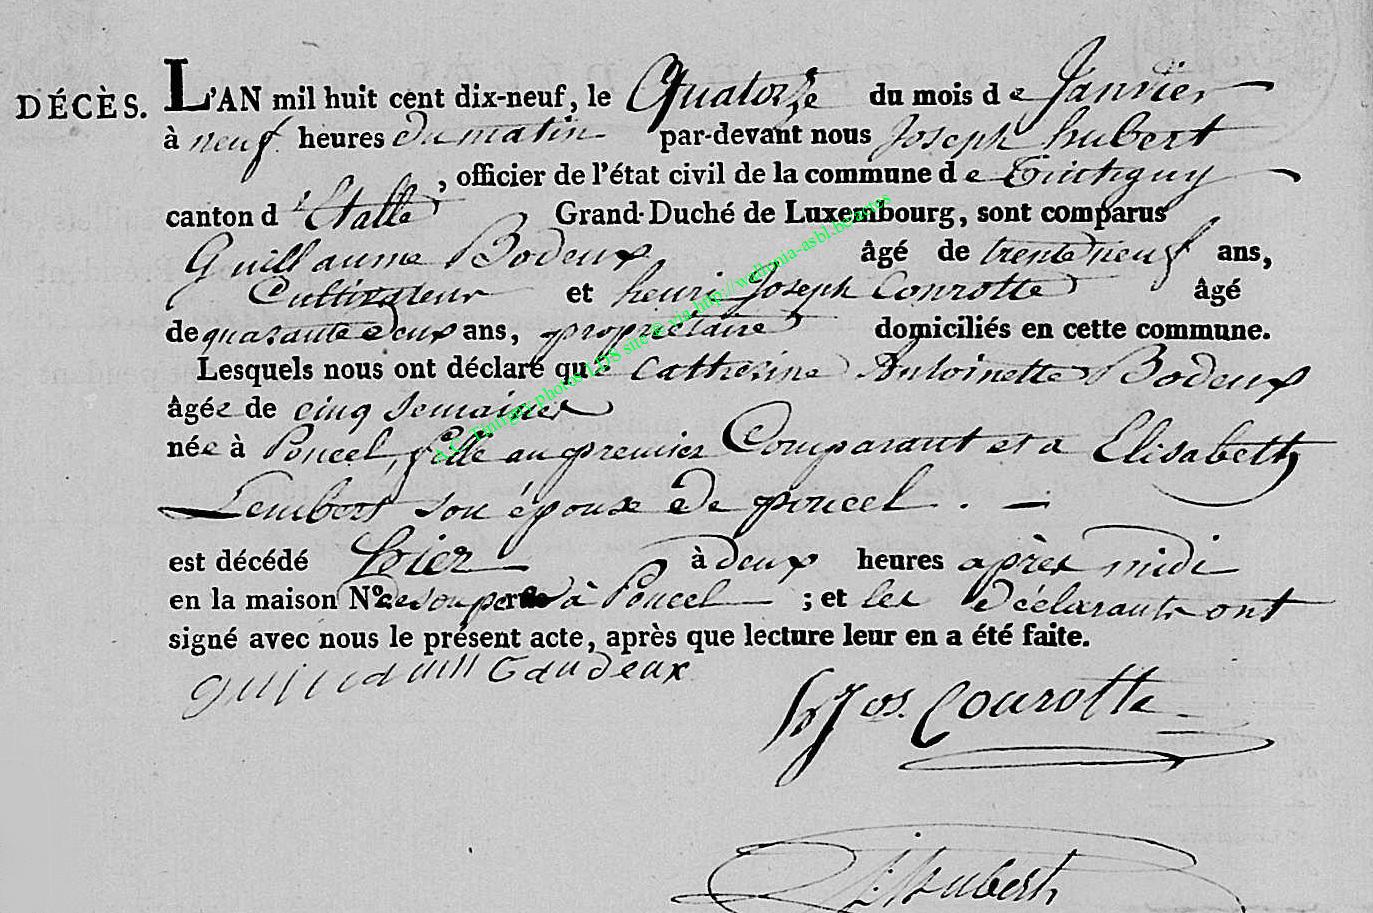 DÉCÈS. L'AN mil huit cent dix-neuf, le Quatorze du mois de Janvier
à neuf heures du matin par-devant nous Joseph hubert
, officier de l'état civil de la commune de Tintigny
canton d'Etalle Grand-Duché de Luxembourg, sont comparus
Guillaume Bodeux âgé de trente neuf ans,
Cultivateur et henri Joseph Conrotte âgé
de quarante deux ans, propriétaire domiciliés en cette commune.
Lesquels nous ont déclaré que Catherine Antoinette Bodeux
âgée de cinq semaines
née à Poncel, fille au premier Comparant et a Elisabeth
Lembert son épouse de poncel.
est décédé hier à deux heures après midi
en la maison N° de son père à Poncel ; et les déclarants ont
signé avec nous le présent acte, après que lecture leur en a été faite.
h Jos. Conrotte
J. Hubert
A.C. Tintigny photos LDS site @ via http://wallonia-asbl.be/actes